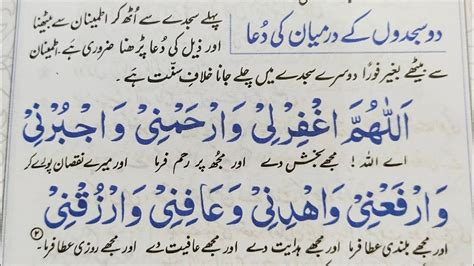 دو سجدوں کے درمیان کی دُعا
پہلے سجدے سے اُٹھ کر اطمینان سے بیٹھنا
اور ذیل کی دُعا پڑھنا ضروری ہے۔ اطمینان
سے بیٹھے بغیر فورًا دوسرے سجدے میں چلے جانا خلافِ سنّت ہے۔
اَللّٰهُمَّ اغْفِرْ لِیْ وَ ارْحَمْنِیْ وَ اجْبُرْنِیْ
اے اللہ ! مجھے بخش دے اور مجھ پر رحم فرما اور میرے نقصان پورے کر
وَ ارْفَعْنِیْ وَ اهْدِنِیْ وَ عَافِنِیْ وَ ارْزُقْنِیْ
اور مجھے بلندی عطا فرما اور مجھے ہدایت دے اور مجھے عافیت دے اور مجھے روزی عطا فرما۔ ۲